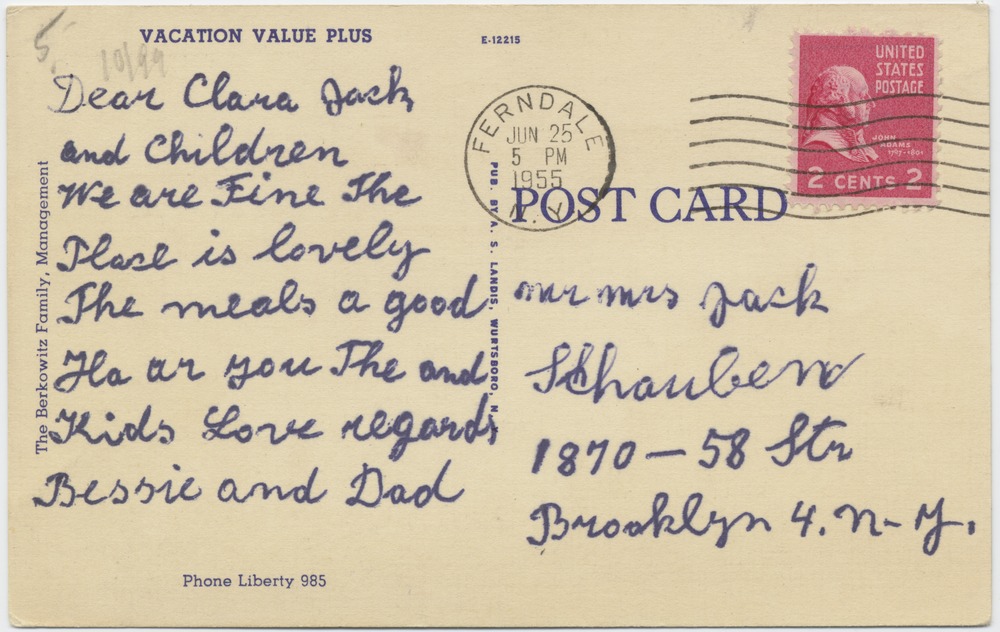 VACATION VALUE PLUS
E-12215
5.
10/99
Dear Clara Jack
and Children
We are Fine The
Place is lovely
The meals a good
Ha ar you The and
Kids Love regards
Bessie and Dad
The Berkowitz Family, Management
Phone Liberty 985
PUB. BY A. S. LANDIS, WURTSBORO, N.
FERNDALE
JUN 25
5 PM
1955
N.Y.
UNITED
STATES
POSTAGE
JOHN
ADAMS
1797-1801
2 CENTS 2
POST CARD
mr mrs Jack
1870 — 58 Str
Brooklyn 4. N-Y.